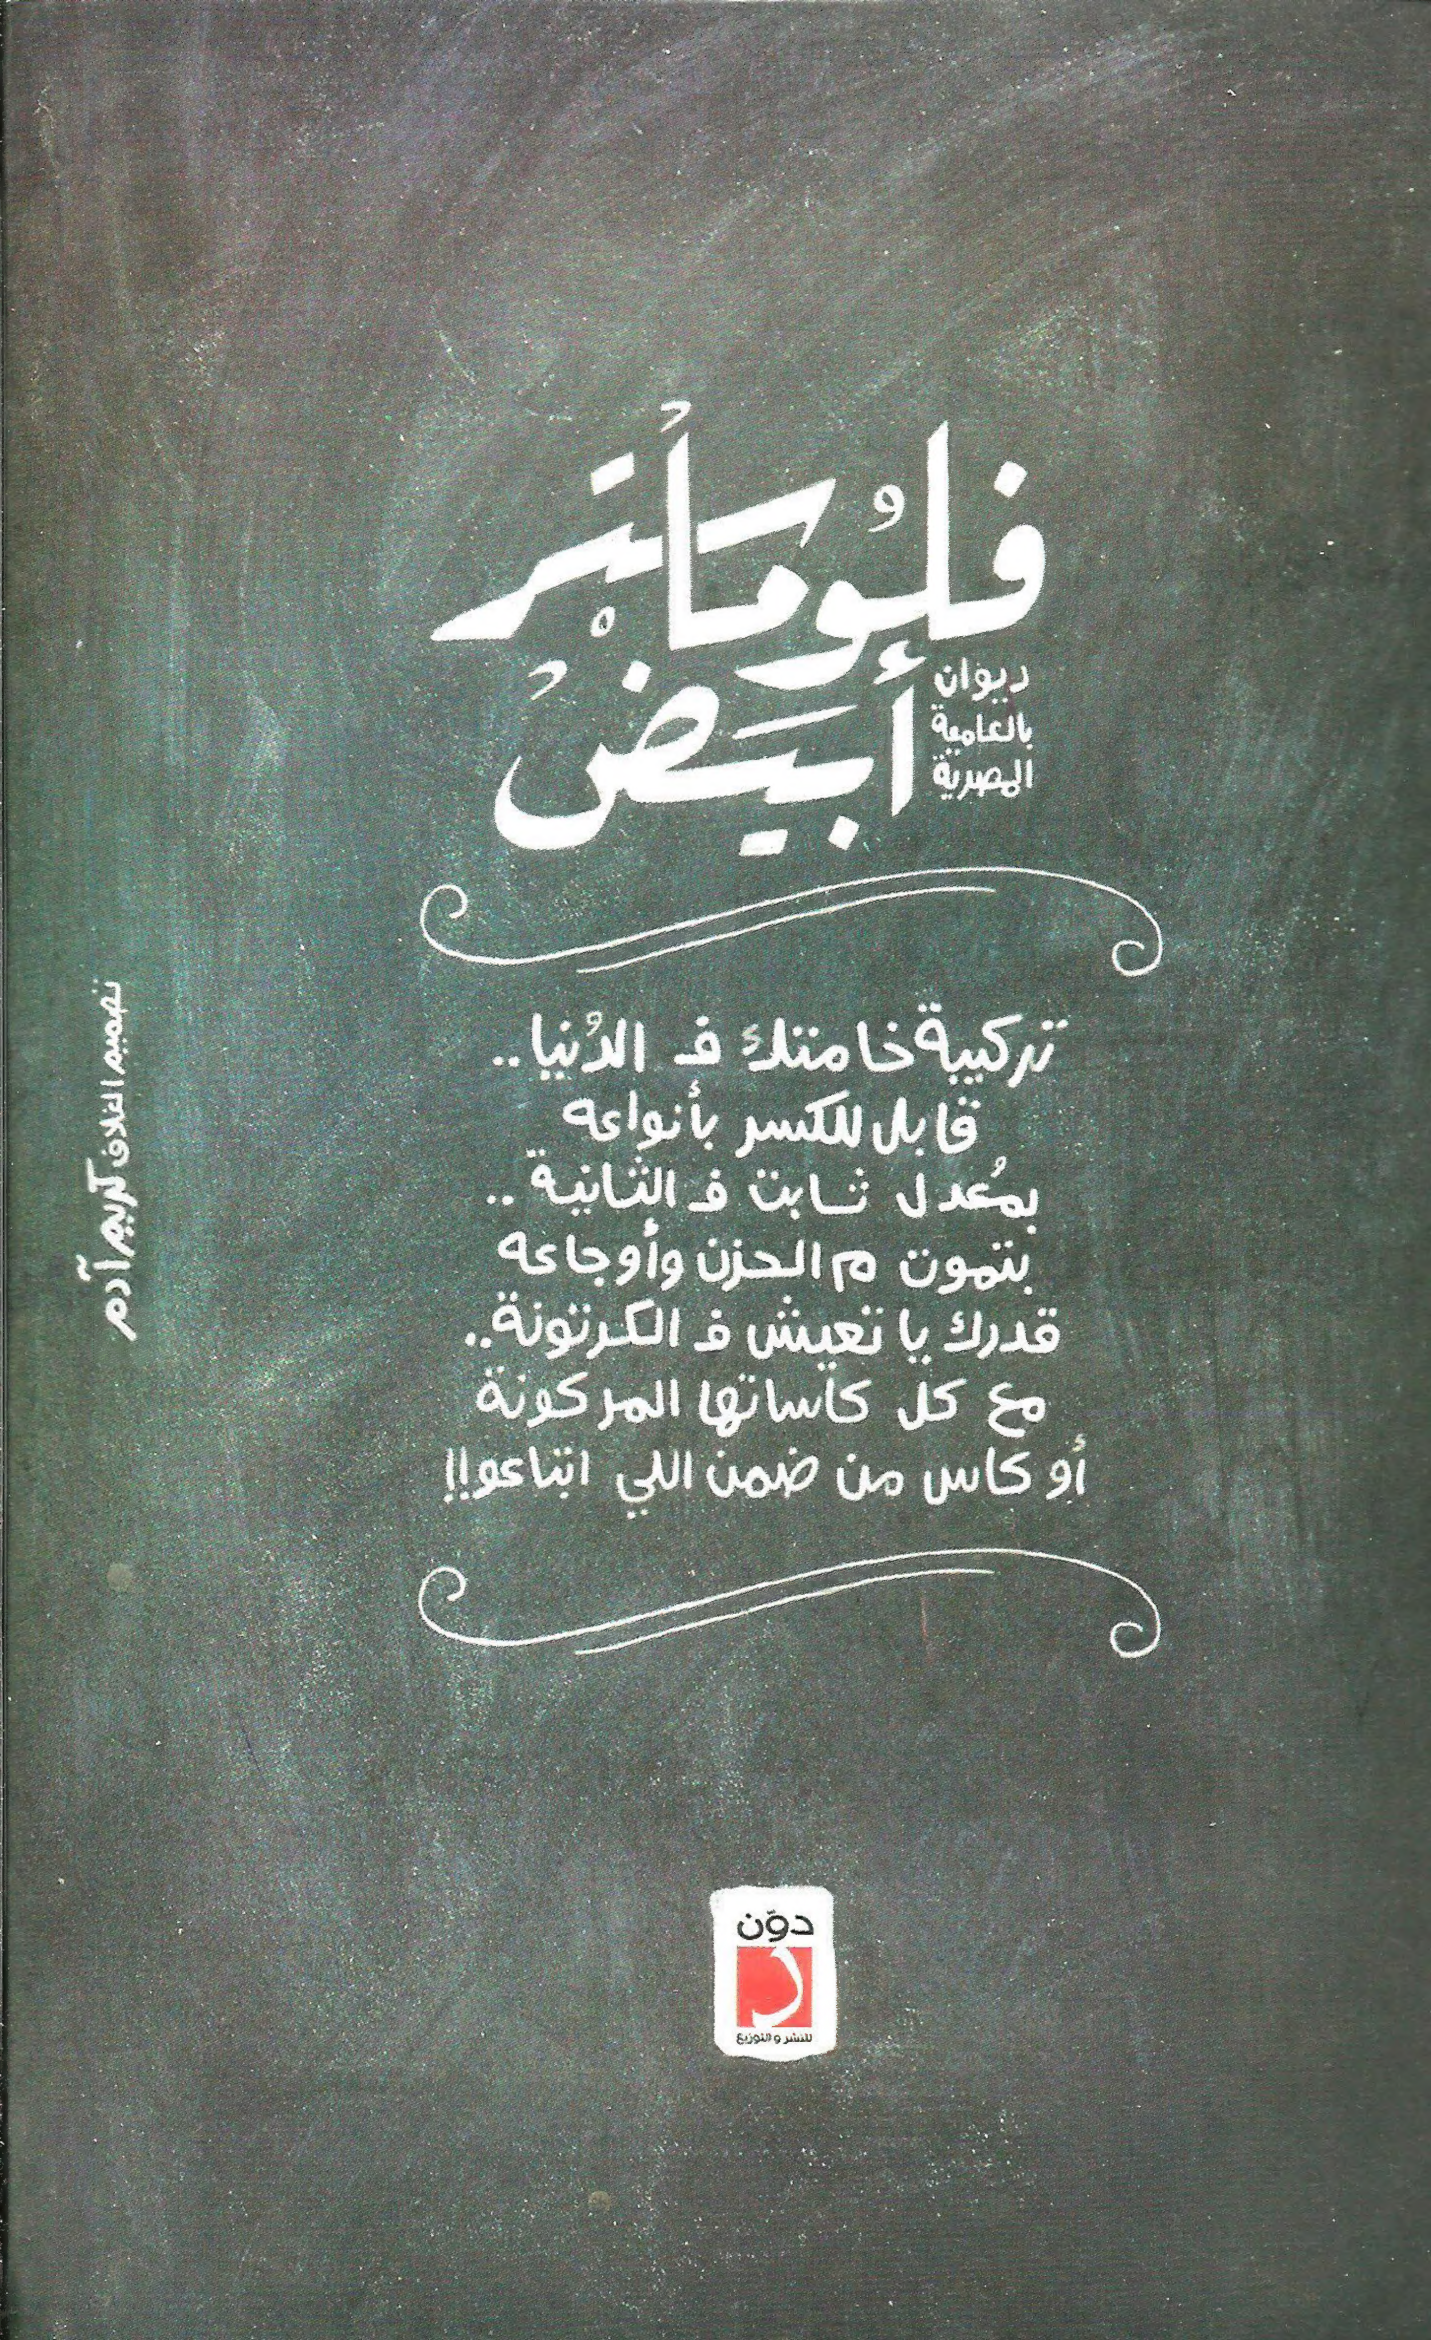 فلُوماستر
أبيَض
ديوان
بالعامية
المصرية
تركيبة خامتك فـ الدُنيا..
قابل للكسر بأنواعه
بمُعدل ثابت فـ الثانية..
بتموت م الحزن وأوجاعه
قدرك يا تعيش فـ الكرتونة..
مع كل كاساتها المركونة
أو كاس من ضمن اللي اتباعوا!!
تصميم الغلاف كريم آدم
دوّن
للنشر والتوزيع